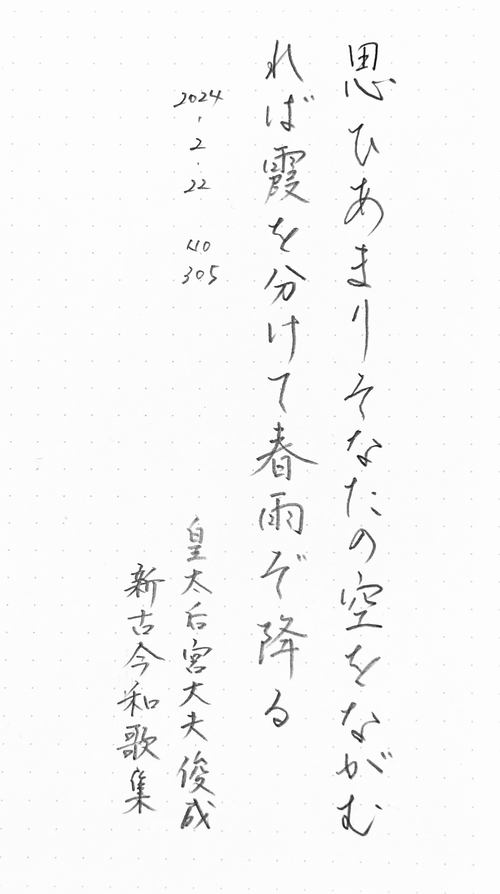 思ひあまりそなたの空をながむ
れば霞を分けて春雨ぞ降る
2024.2.22 K10 305
皇太后宮大夫俊成
新古今和歌集